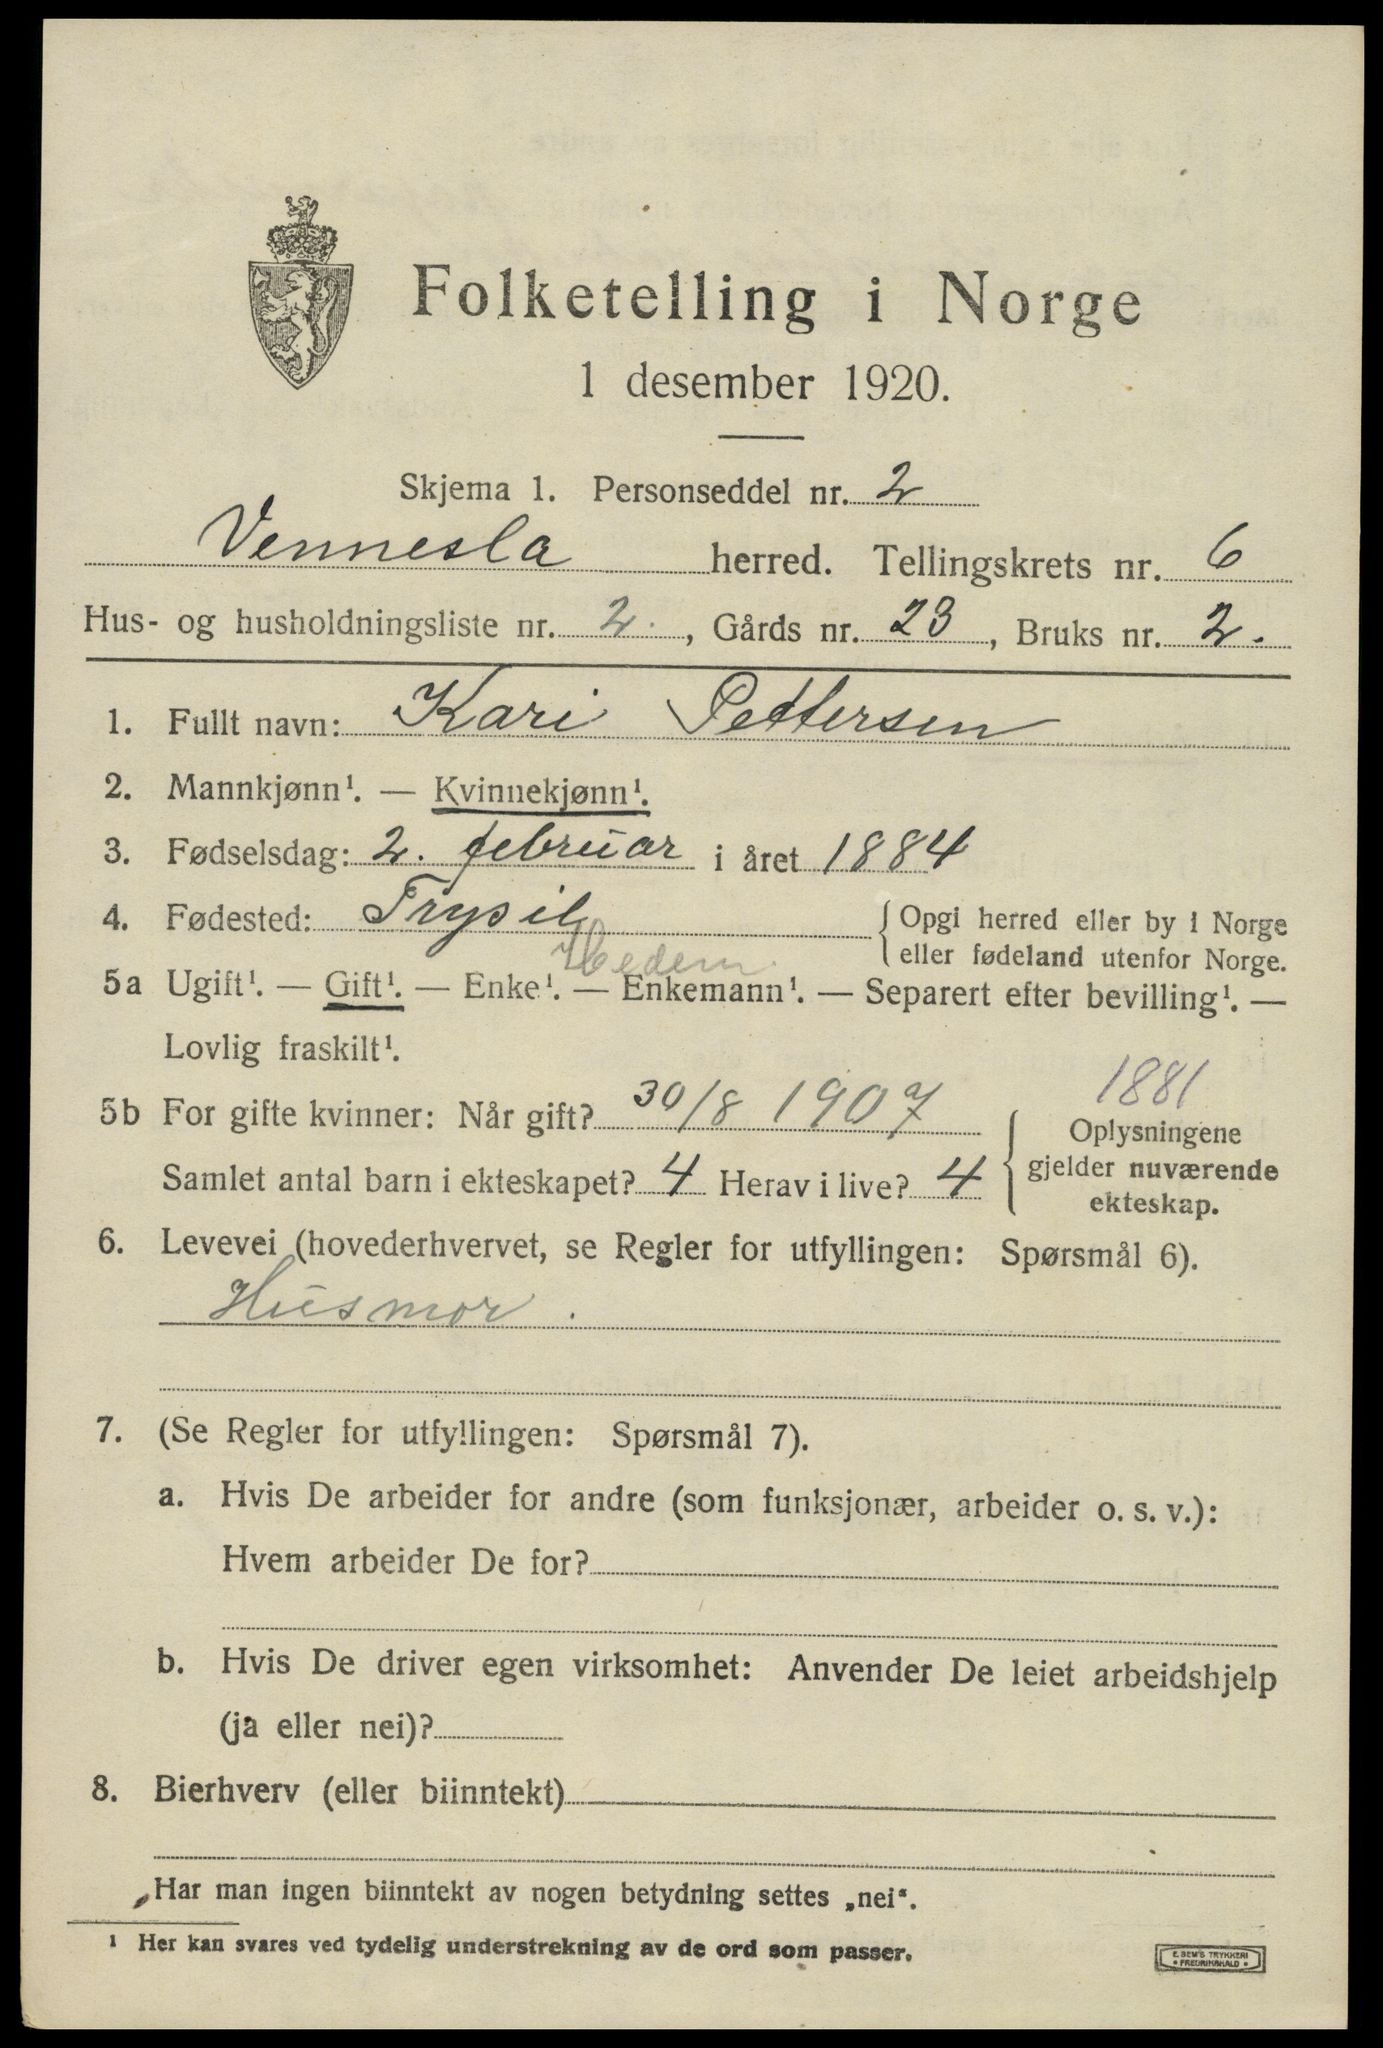 Folketelling i Norge
1 desember 1920.
Skjema 1. Personseddel nr. 2
Vennesla herred. Tellingskrets nr. 6
Hus- og husholdningsliste nr. 2., Gårds nr. 23, Bruks nr. 2.
1. Fullt navn: Kari Pettersen
2. Mannkjønn¹. — Kvinnekjønn¹.
3. Fødselsdag: 2. februar i året 1884
4. Fødested: Trysil {Opgi herred eller by i Norge
eller fødeland utenfor Norge.
Hedem.
5a Ugift¹. — Gift¹. — Enke¹. — Enkemann¹. — Separert efter bevilling¹. —
Lovlig fraskilt¹.
1881
5b For gifte kvinner: Når gift? 30/8 1907
Samlet antal barn i ekteskapet? 4 Herav i live? 4
{Oplysningene
gjelder nuværende
ekteskap.
6. Levevei (hovederhvervet, se Regler for utfyllingen: Spørsmål 6).
Husmor.
7. (Se Regler for utfyllingen: Spørsmål 7).
a. Hvis De arbeider for andre (som funksjonær, arbeider o. s. v.):
Hvem arbeider De for?
b. Hvis De driver egen virksomhet: Anvender De leiet arbeidshjelp
(ja eller nei)?
8. Bierhverv (eller biinntekt)
Har man ingen biinntekt av nogen betydning settes „nei".
¹ Her kan svares ved tydelig understrekning av de ord som passer.
E. SEM'S TRYKKERI
• FREDRIKSHALD •